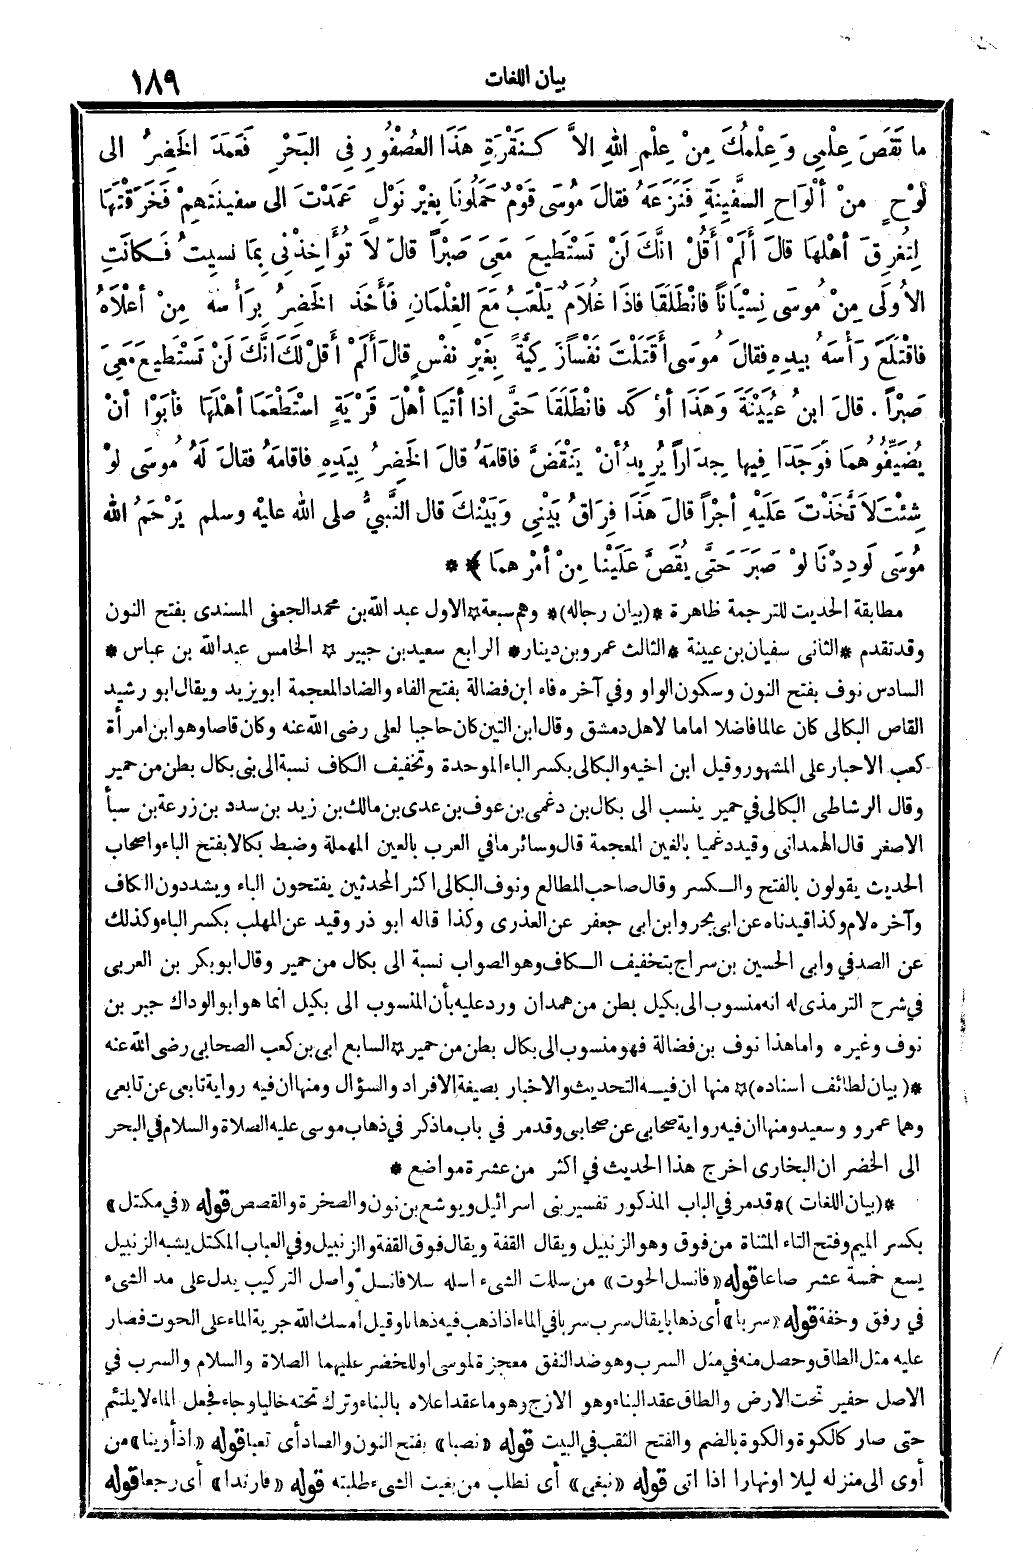 بيان اللغات
١٨٩
ما نَقَصَ عِلْمِي وَعِلْمُكَ مِنْ عِلْمِ اللهِ الاَّ كَنَقْرَةِ هَذَا العُصْفُورِ فِي البَحْرِ فَعَمَدَ الخَضِرُ الى
لَوْحٍ مِنْ أَلْوَاحِ السَّفِينَةِ فَنَزَعَهُ فقالَ مُوسَى قَوْمٌ حَمَلُونَا بِغَيْرِ نَوْلٍ عَمَدْتَ الى سفينَتهِمْ فَخَرَقْتَهَا
لِتُغْرِقَ أهْلهَا قالَ أَلَمْ أَقُلْ انَّكَ لَنْ تَسْتَطيعَ مَعِيَ صَبْراً قالَ لاَ تُؤَاخِذْنِي بِمَا نسِيتُ فَكانَتِ
الأُولَى مِنْ مُوسَى نِسْيَاناً فانْطَلَقَا فاذَا غُلاَمٌ يَلْعَبُ مَعَ الغِلْمانِ فَأَخَذَ الخَضِرُ بِرَأسهِ مِنْ أعْلاَهُ
فاقْتَلَعَ رَأْسَهُ بيدِهِ فقالَ مُوسَى أقَتَلْتَ نَفْساً زَكِيَّةً بِغَيْرِ نَفْسٍ قالَ أَلَمْ أَقُلْ لَكَ انَّكَ لَنْ تَسْتَطيعَ مَعِيَ
صَبْراً. قالَ ابنُ عُيَيْنَةَ وَهَذَا أوْكَد فانْطَلَقَا حَتَّى اذا أتَيَا أهْلَ قَرْيَةٍ اسْتَطْعَمَا أهْلَهَا فأبَوْا أنْ
يُضَيِّفُوهُمَا فَوَجَدَا فِيها جِدَاراً يُرِيدُ أنْ يَنْقَضَّ فاقامَهُ قالَ الخَضِرُ بِيَدِهِ فاقامَهُ فقالَ لَهُ مُوسَى لوْ
شِئْتَ لاَتَّخَذْتَ عَلَيْهِ أجْراً قالَ هَذَا فِرَاقُ بَيْنِي وَبَيْنكَ قال النَّبيُّ صلى الله عليْه وسلم يَرْحَمُ اللهُ
مُوسَى لَودِدْنَا لوْ صَبَرَ حَتَّى يُقَصَّ عَلَيْنَا مِنْ أمْرهِمَا ﴾ **
مطابقة الحديث للترجمة ظاهرة *(بيان رجاله)* وهم سبعة * الاول عبد الله بن محمد الجعفى المسندى بفتح النون
وقد تقدم * الثانى سفيان بن عيينة * الثالث عمرو بن دينار * الرابع سعيد بن جبير * الخامس عبد الله بن عباس *
السادس نوف بفتح النون وسكون الواو وفى آخره فاء ابن فضالة بفتح الفاء والضاد المعجمة ابو يزيد ويقال ابو رشيد
القاص البكالى كان عالما فاضلا اماما لاهل دمشق وقال ابن التين كان حاجبا لعلى رضى الله عنه وكان قاصا وهو ابن امرأة
كعب الاحبار على المشهور وقيل ابن اخيه والبكالى بكسر الباء الموحدة وتخفيف الكاف نسبة الى بنى بكال بطن من حمير
وقال الرشاطى البكالى فى حمير ينسب الى بكال بن دغمى بن عوف بن عدى بن مالك بن زيد بن سدد بن زرعة بن سبأ
الاصغر قال الهمدانى وقيد دغميا بالغين المعجمة قال وسائر مافى العرب بالعين المهملة وضبط بكالا بفتح الباء واصحاب
الحديث يقولون بالفتح والكسر وقال صاحب المطالع ونوف البكالى اكثر المحدثين يفتحون الباء ويشددون الكاف
وآخره لام وكذا قيدناه عن ابى بحر وابن ابى جعفر عن العذرى وكذا قاله ابو ذر وقيد عن المهلب بكسر الباء وكذلك
عن الصدفى وابى الحسين بن سراج بتخفيف الكاف وهو الصواب نسبة الى بكال من حمير وقال ابو بكر بن العربى
فى شرح الترمذى له انه منسوب الى بكيل بطن من همدان ورد عليه بأن المنسوب الى بكيل انما هو ابو الوداك جبر بن
نوف وغيره واما هذا نوف بن فضالة فهو منسوب الى بكال بطن من حمير * السابع ابى بن كعب الصحابى رضى الله عنه
*(بيان لطائف اسناده)* منها ان فيه التحديث والاخبار بصيغة الافراد والسؤال ومنها ان فيه رواية تابعى عن تابعى
وهما عمرو وسعيد ومنها ان فيه رواية صحابى عن صحابى وقد مر في باب ما ذكر فى ذهاب موسى عليه الصلاة والسلام فى البحر
الى الخضر ان البخارى اخرج هذا الحديث فى اكثر من عشرة مواضع *
*(بيان اللغات)* قد مر فى الباب المذكور تفسير بنى اسرائيل ويوشع بن نون والصخرة والقصص قوله «فى مكتل»
بكسر الميم وفتح التاء المثناة من فوق وهو الزنبيل ويقال القفة ويقال فوق القفة والزنبيل وفى العباب المكتل يشبه الزنبيل
يسع خمسة عشر صاعا قوله «فانسل الحوت» من سللت الشىء اسله سلا فانسل واصل التركيب يدل على مد الشىء
فى رفق وخفة قوله «سربا» أى ذهابا يقال سرب سربا فى الماء اذا ذهب فيه ذهابا وقيل أمسك الله جرية الماء على الحوت فصار
عليه مثل الطاق وحصل منه فى مثل السرب وهو ضد النفق معجزة لموسى او للخضر عليهما الصلاة والسلام والسرب فى
الاصل حفير تحت الارض والطاق عقد البناء وهو الازج وهو ما عقد اعلاه بالبناء وترك تحته خاليا وجاء فجعل الماء لا يلتئم
حتى صار كالكوة والكوة بالضم والفتح الثقب فى البيت قوله «نصبا» بفتح النون والصاد أى تعبا قوله «اذ أوينا» من
أوى الى منزله ليلا او نهارا اذا اتى قوله «نبغى» أى نطلب من بغيت الشىء طلبته قوله «فارتدا» أى رجعا قوله